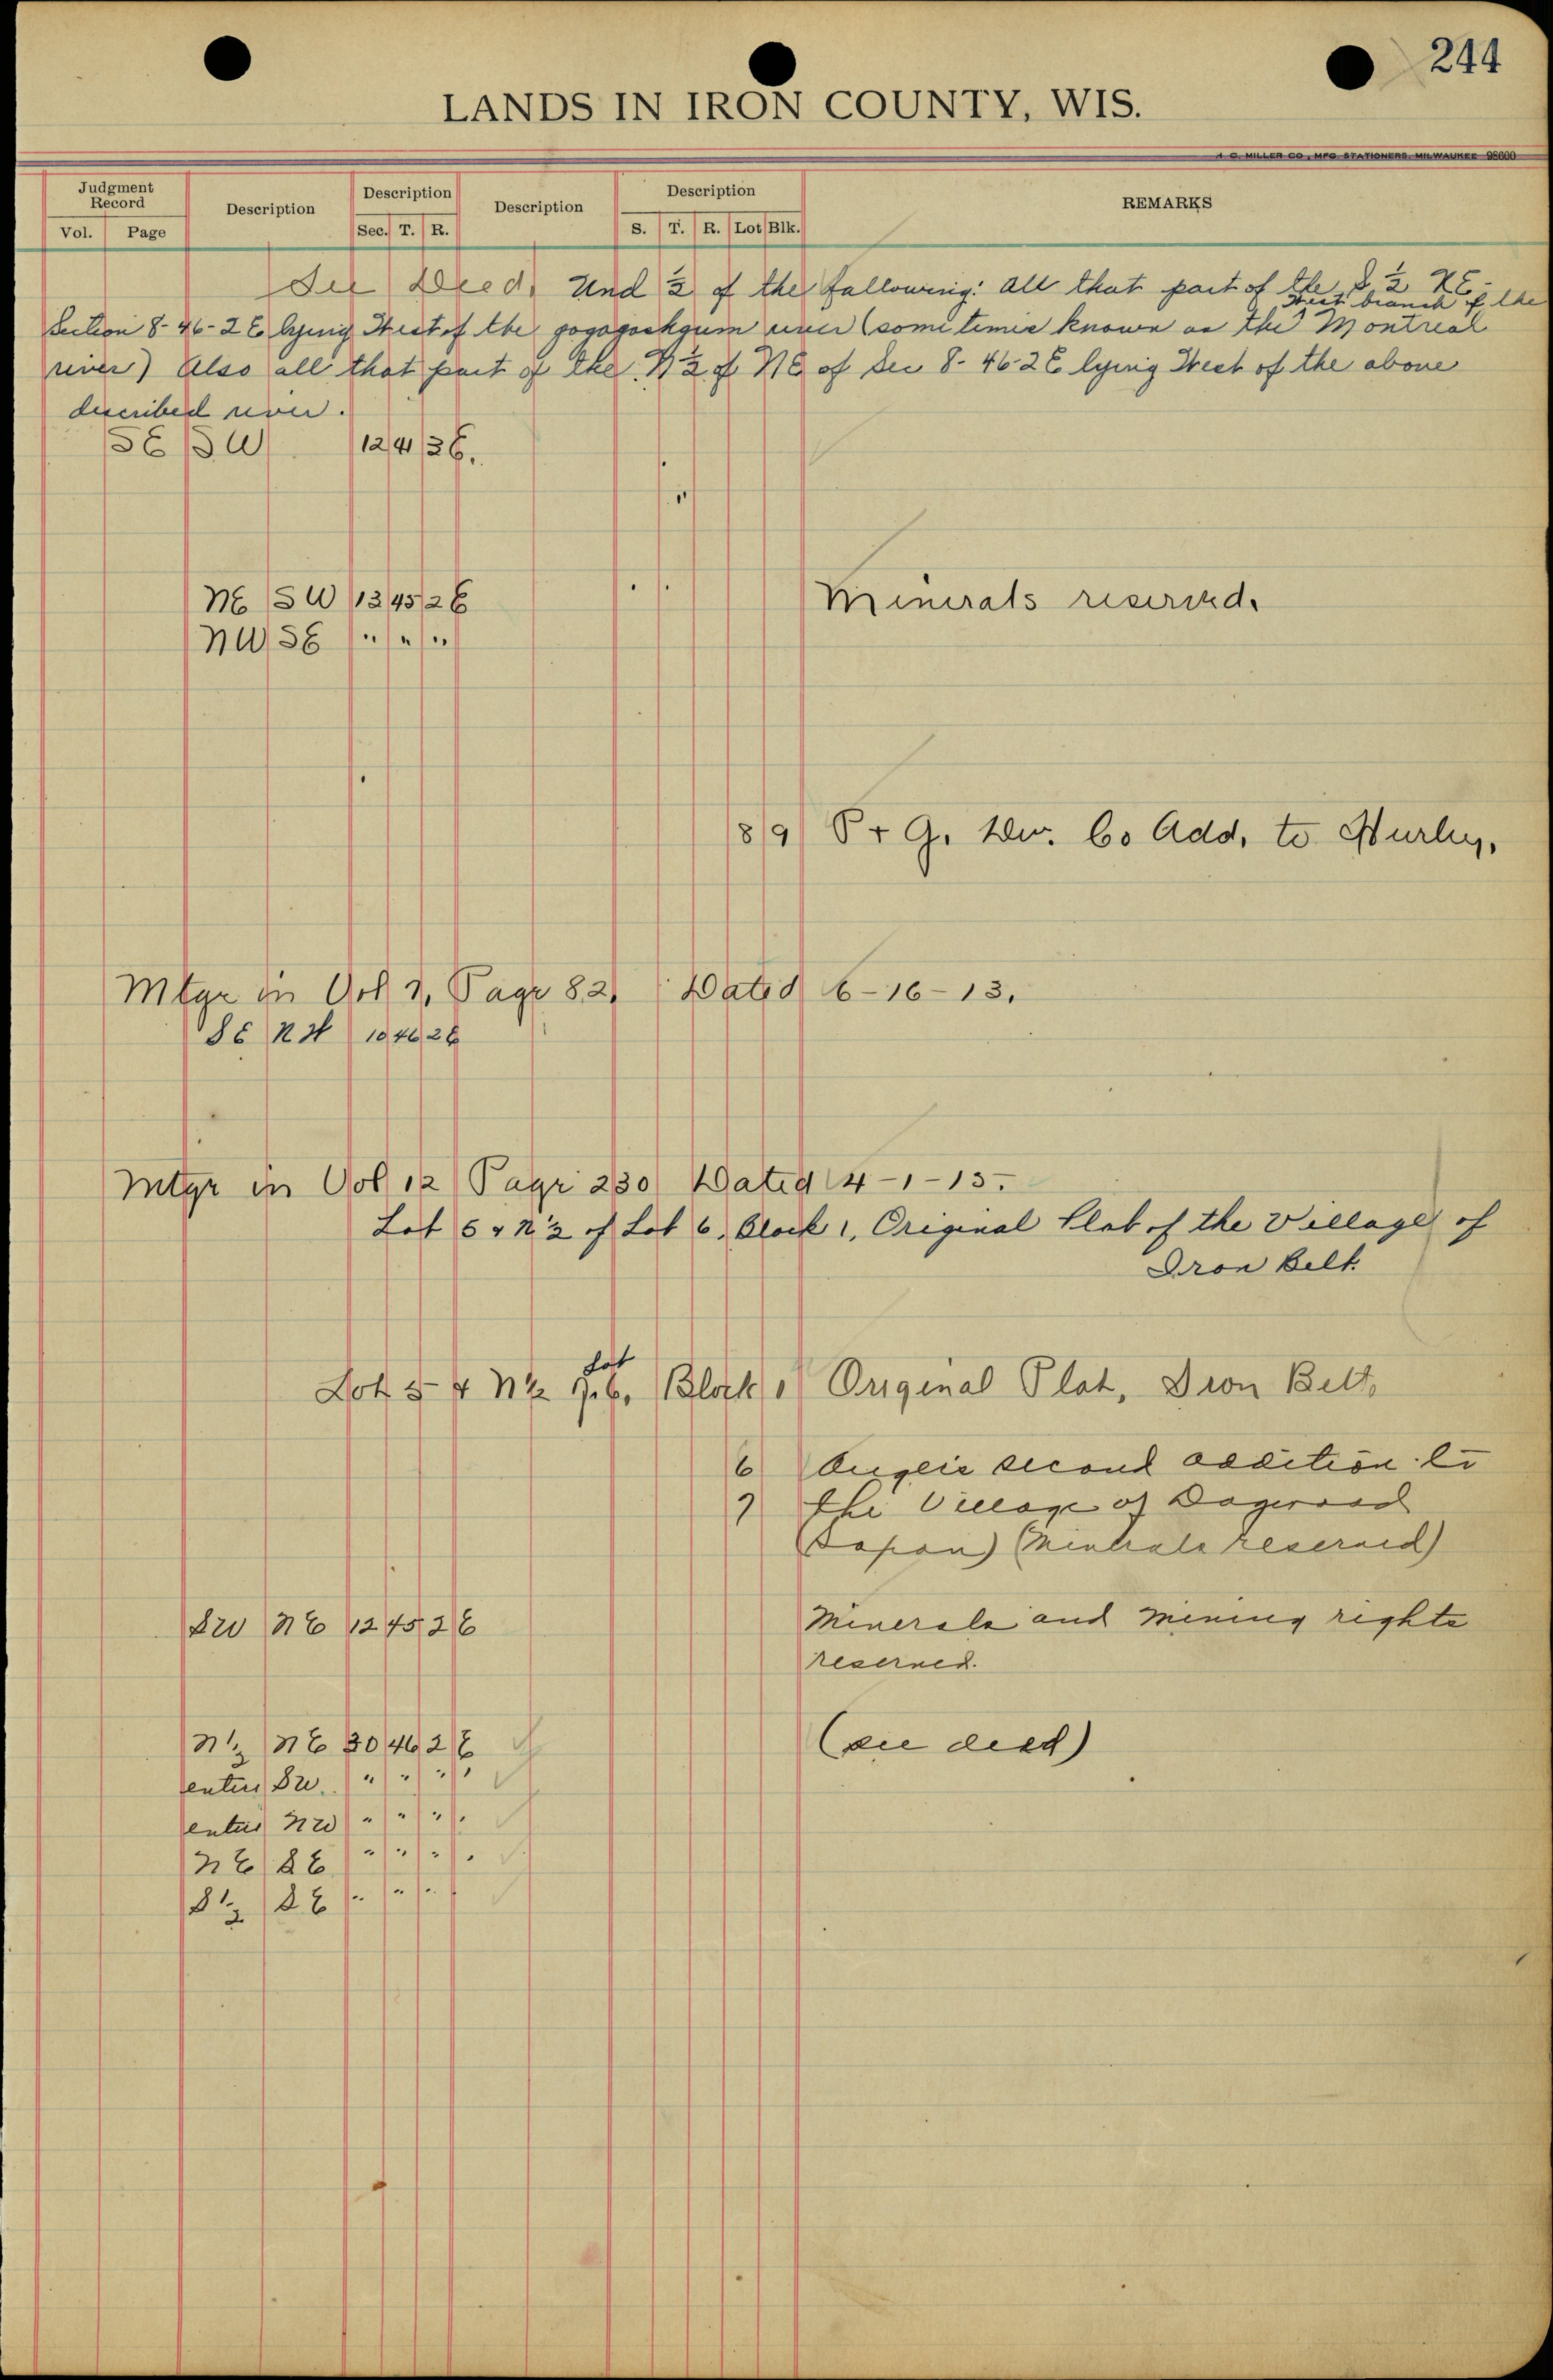 244
LANDS IN IRON COUNTY, WIS.
H. C. MILLER CO., MFG. STATIONERS, MILWAUKEE 98600
Judgment Record Description Description Description Description REMARKS
Vol. Page Sec. T. R. S. T. R. Lot Blk.
See Deed. Und ½ of the following: All that part of the S ½ NE-
Section 8-46-2 E lying West of the gogogashgum river (sometimes known as the West branch of the Montreal
river) Also all that part of the N ½ of NE of Sec 8-46-2E lying West of the above
described river.
SE SW 12 4 3 E.
"
NE SW 13 45 2 E Minerals reserved.
NW SE " " "
8 9 P + G. Dev. Co Add. to Hurley.
Mtge in Vol 7, Page 82, Dated 6-16-13.
SE NW 10 46 2 E
Mtge in Vol 12 Page 230 Dated 4-1-15.
Lot 5 & N ½ of Lot 6, Block 1, Original Plat of the Village of
Iron Belt.
Lot 5 & N½ of Lot 6, Block 1 Original Plat, Iron Belt,
6 second addition to
7 the Village of Dogwood
(Saxon) (Minerals reserved)
SW NE 12 45 2 E Minerals and mining rights
reserved.
N ½ NE 30 46 2 E (see deed)
entire SW. " " "
entire NW " " "
NE SE " " "
S ½ SE " " "